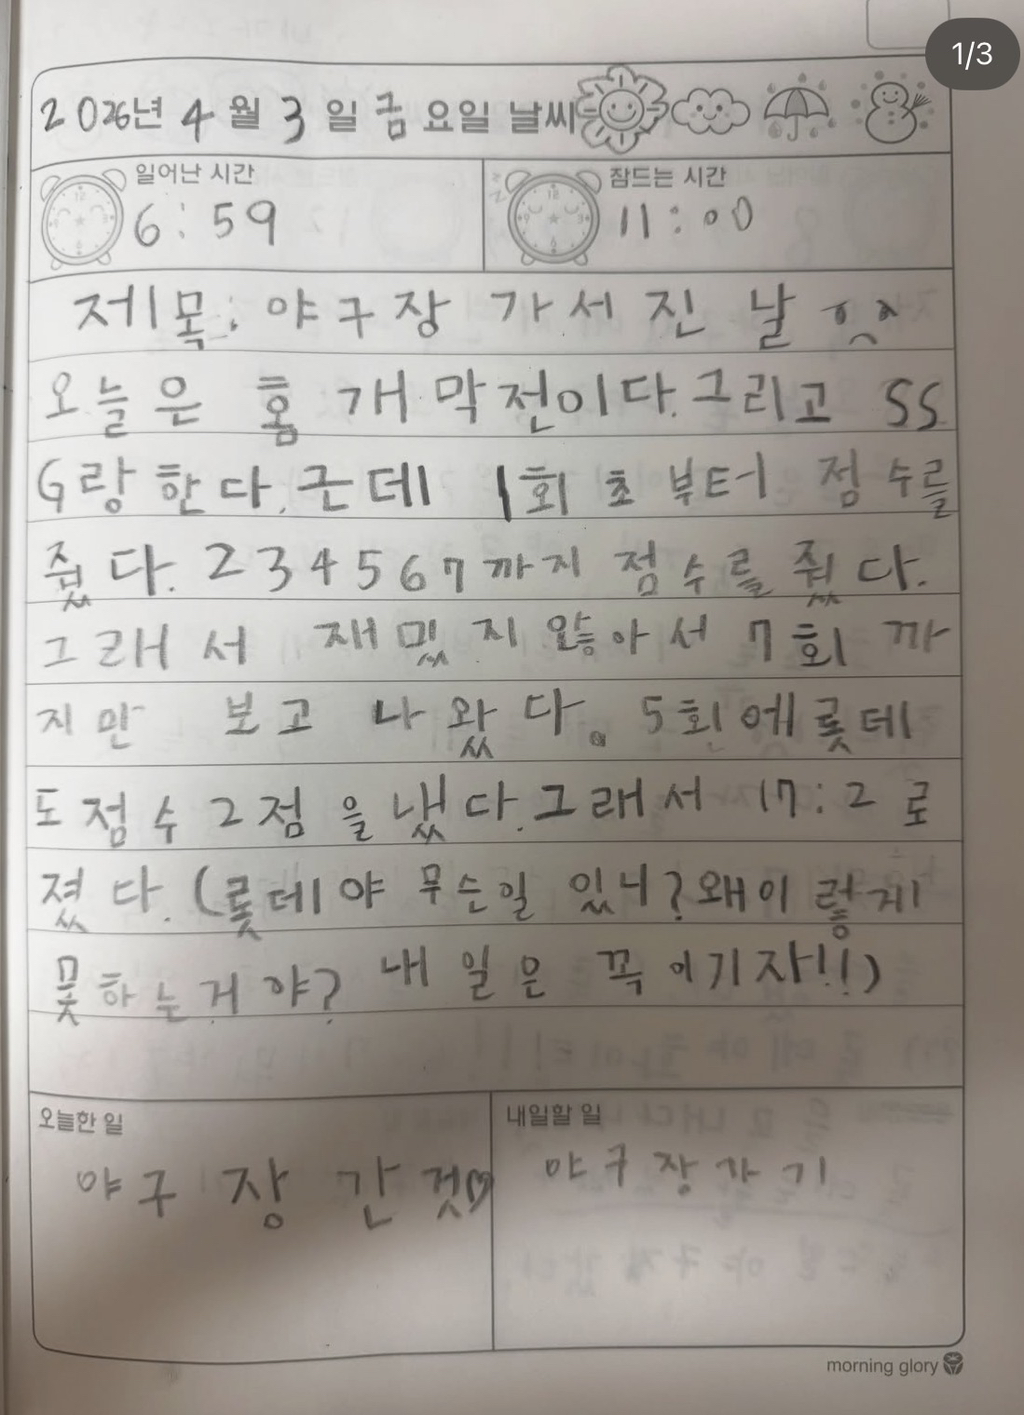 1/3
2026년 4월 3일 금요일 날씨
일어난 시간
6:59
잠드는 시간
11:00
제목: 야구장 가서 진 날
오늘은 홈 개막전이다. 그리고 SS
G랑 한다. 근데 1회 초 부터 점수를
줬다. 2 3 4 5 6 7 까지 점수를 줬다.
그래서 재밌지 않아서 7회 까
지만 보고 나왔다. 5회에 롯데
도 점수 2점을 냈다. 그래서 17:2 로
졌다. (롯데야 무슨일 있니? 왜 이렇게
못하는거야? 내일은 꼭 이기자!!)
오늘한 일
야구장 간것♡
내일할 일
야구장 가기
morning glory